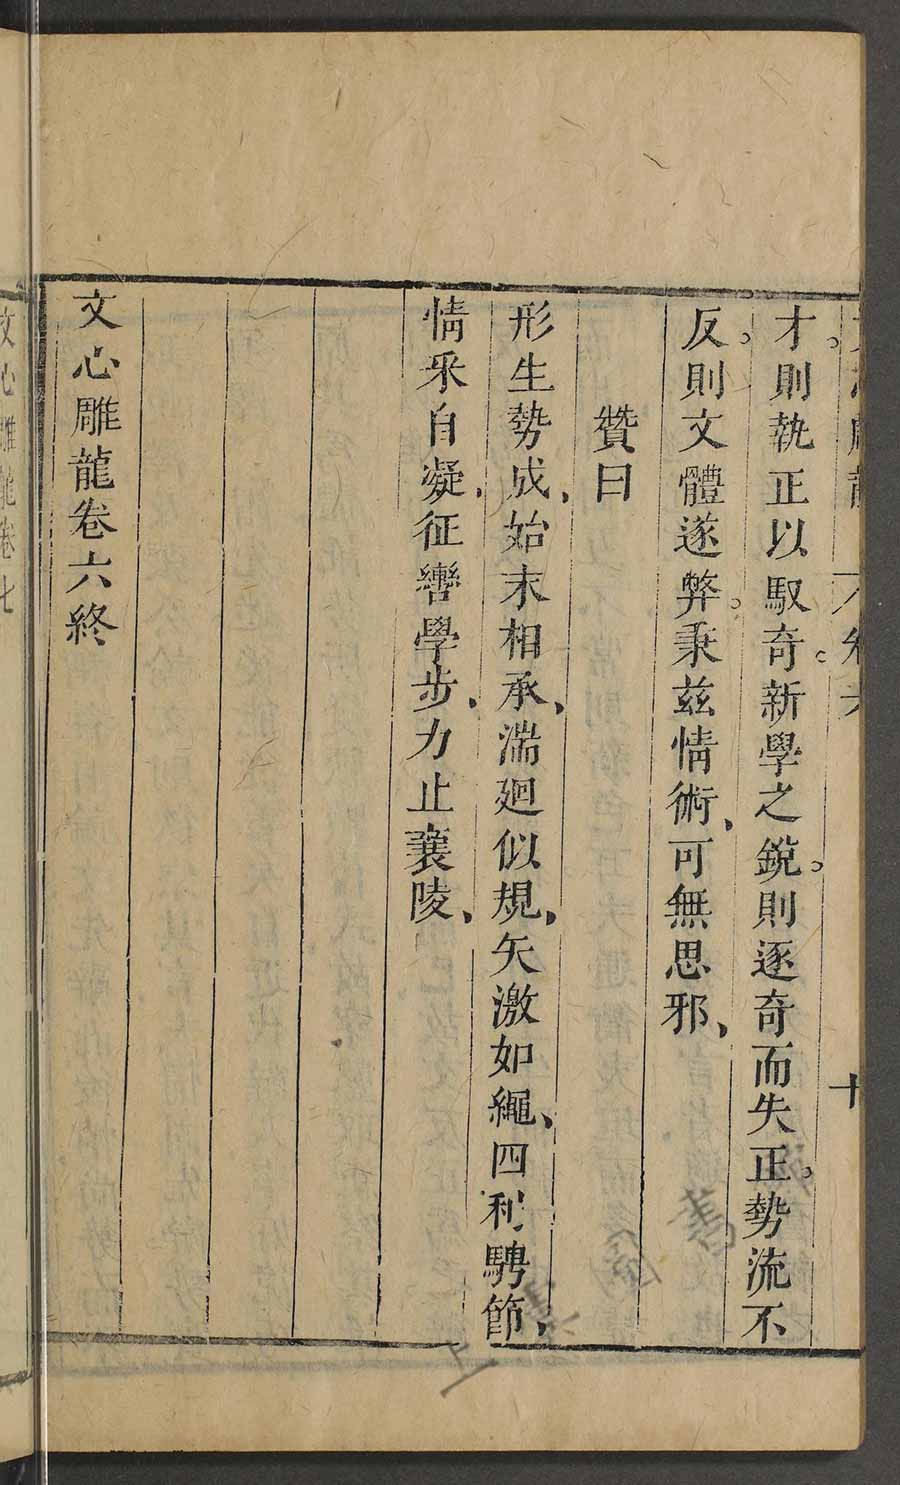 才則執正以馭奇新學之銳則逐奇而失正勢流不
反則文體遂弊秉茲情術可無思邪
贊曰
形生勢成始末相承湍廻似規矢激如繩四利騁節
情采自凝征轡學步力止襄陵
文心雕龍卷六終
文心雕龍卷七